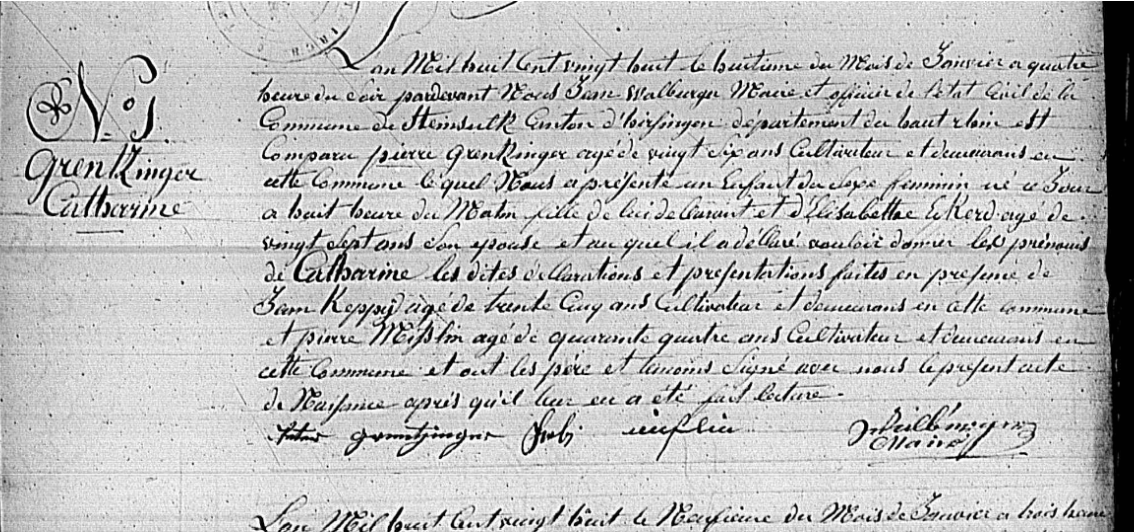 N.o 1.
Grenkinger
Catharine
L'an Mil huit Cent vingt huit le huitieme du Mois de Janvier a quatre
heure du Soir pardevant Nous Jean Walburgn Maire et officier de l'etat Civil de la
Commune de Steinsulk Canton d'hirsingen département du haut rhin est
Comparu pierre Grenkinger agé de vingt Six ans Cultivateur et demeurans en
cette Commune le quel Nous a présenté un Enfant du Sexe feminin né ce Jour
a huit heure du Matin fille de lui declarant et d'Elisabethe Ekerd agé de
vingt Sept ans Son epouse et au quel il a declaré vouloir donner les prénoms
de Catharine les dites déclarations et presentations faites en presence de
Jean Keppy agé de trente Cinq ans Cultivateur et demeurans en cette commune
et pierre Mislin agé de quarante quatre ans Cultivateur et demeurans en
cette Commune et ont les père et temoins Signé avec nous le present acte
de Naissance après qu'il leur en a été fait lecture.
grentzinger
Maire
L'an Mil huit Cent vingt huit le Neufieme du Mois de Janvier a trois heure